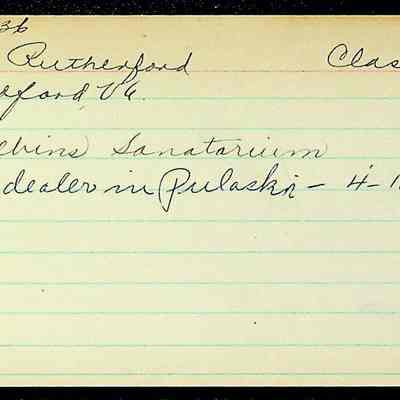 36
Rutherford Clas
dford Va.
chins Sanatarium
dealer in Pulaski - 4-1